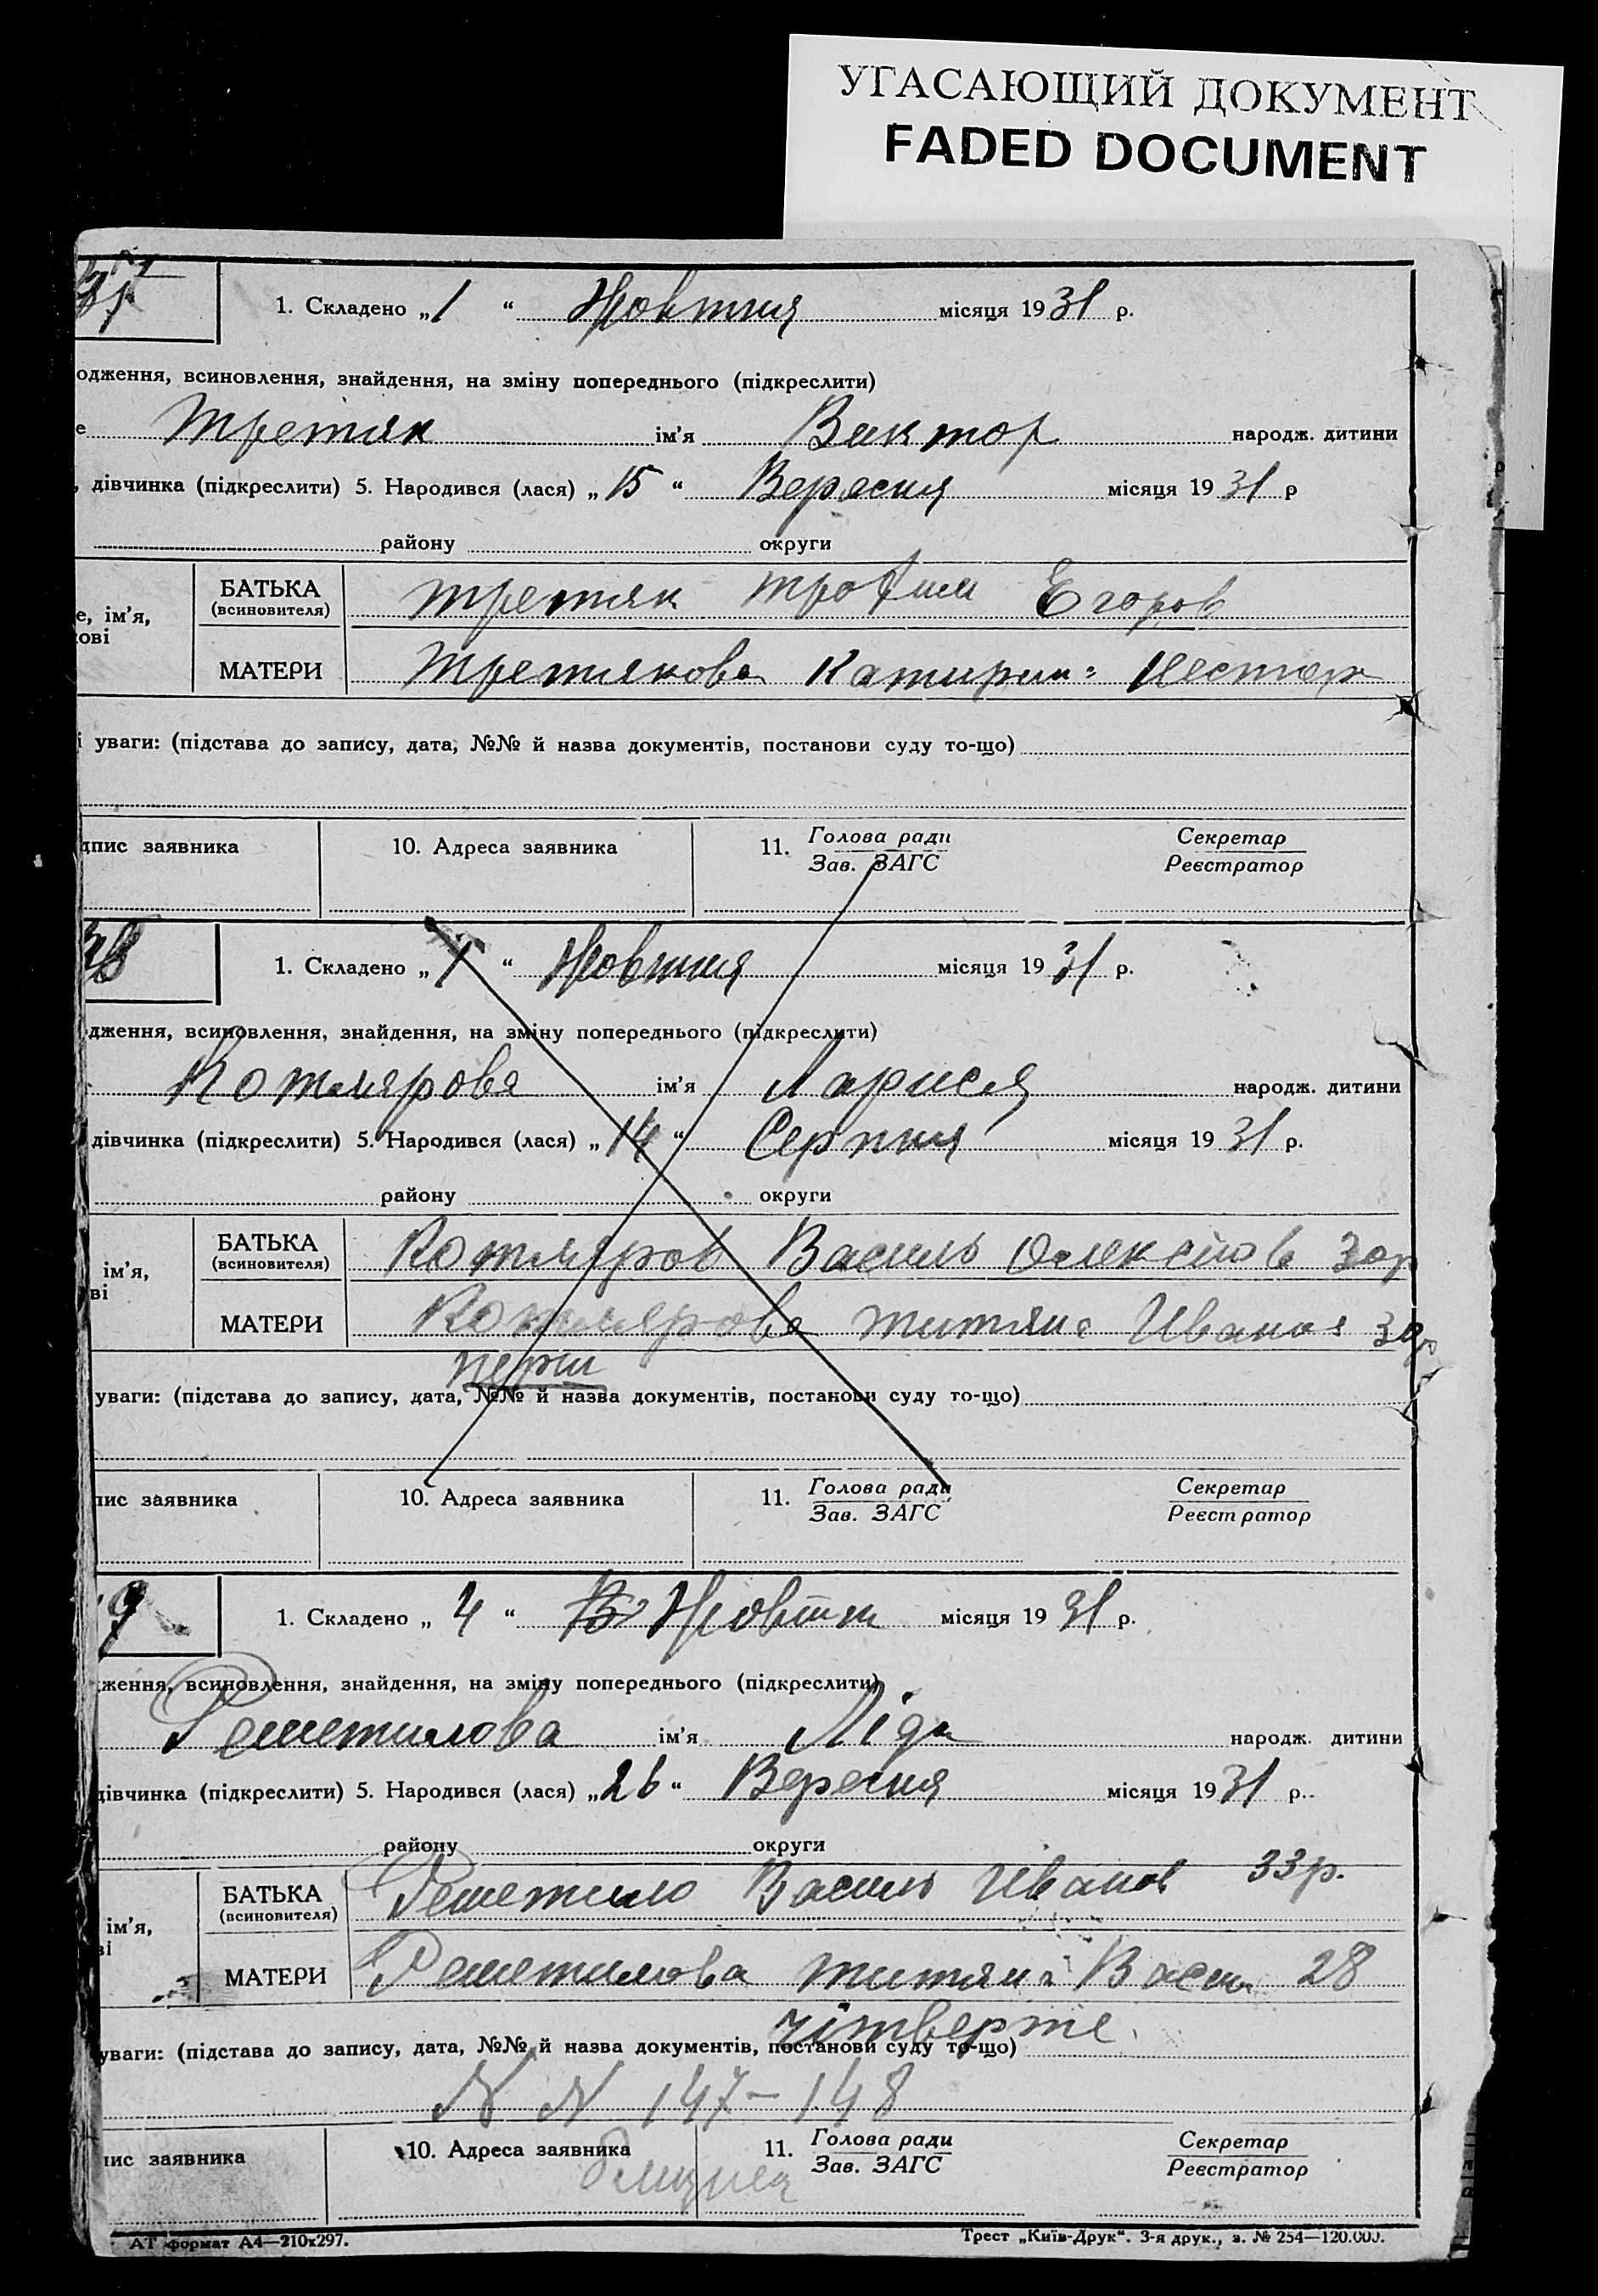 УГАСАЮЩИЙ ДОКУМЕНТ
FADED DOCUMENT
1. Складено „1“ Жовтня місяця 1931 р.
одження, всиновлення, знайдення, на зміну попереднього (підкреслити)
е Третяк ім’я Виктор народж. дитини
, дівчинка (підкреслити) 5. Народився (лася) „15“ Вересня місяця 1931 р
району округи
е, ім’я,
ові
БАТЬКА
(всиновителя)
Третяк Трофим Егоров
МАТЕРИ Третякова Катирин: Нестор
і уваги: (підстава до запису, дата, №№ й назва документів, постанови суду то-що)
дпис заявника 10. Адреса заявника 11. Голова ради Секретар
Зав. ЗАГС Реєстратор
38 1. Складено „1“ Жовтня місяця 1931 р.
дження, всиновлення, знайдення, на зміну попереднього (підкреслити)
Котлярова ім’я Лариса народж. дитини
дівчинка (підкреслити) 5. Народився (лася) „14“ Серпня місяця 1931 р.
району округи
ім’я,
ві
БАТЬКА
(всиновителя)
Котляров Василь Олексіов 30р
МАТЕРИ Котлярова Титяна Иванов 30р
перш
уваги: (підстава до запису, дата, №№ й назва документів, постанови суду то-що)
пис заявника 10. Адреса заявника 11. Голова ради Секретар
Зав. ЗАГС Реєстратор
9 1. Складено „4“ Жовтня місяця 1931 р.
ження, всиновлення, знайдення, на зміну попереднього (підкреслити)
Решетилова ім’я Ліда народж. дитини
дівчинка (підкреслити) 5. Народився (лася) „26“ Вересня місяця 1931 р..
району округи
ім’я,
ві
БАТЬКА
(всиновителя)
Решетило Василь Иванов 33р.
МАТЕРИ Решетилова Титяна Васи 28
чітверте
уваги: (підстава до запису, дата, №№ й назва документів, постанови суду то-що)
N N 147–148
пис заявника 10. Адреса заявника 11. Голова ради Секретар
Зав. ЗАГС Реєстратор
близнец
АТ формат А4—210х297. Трест „Київ-Друк“. 3-я друк., з. № 254—120.000.